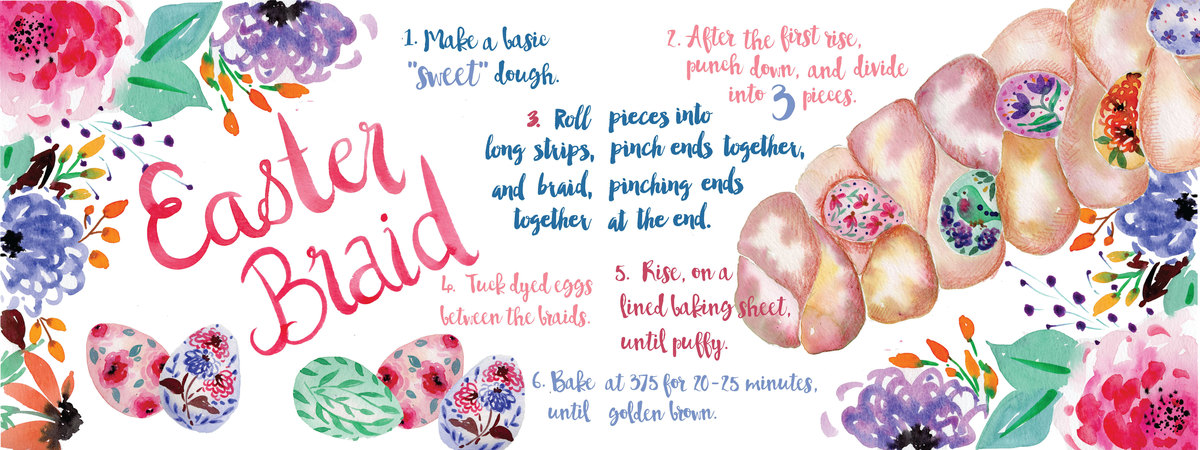 Easter
Braid
1. Make a basic
"sweet" dough.
2. After the first rise,
punch down, and divide
into 3 pieces.
3. Roll pieces into
long strips, pinch ends together,
and braid, pinching ends
together at the end.
4. Tuck dyed eggs
between the braids.
5. Rise, on a
lined baking sheet,
until puffy.
6. Bake at 375 for 20-25 minutes,
until golden brown.